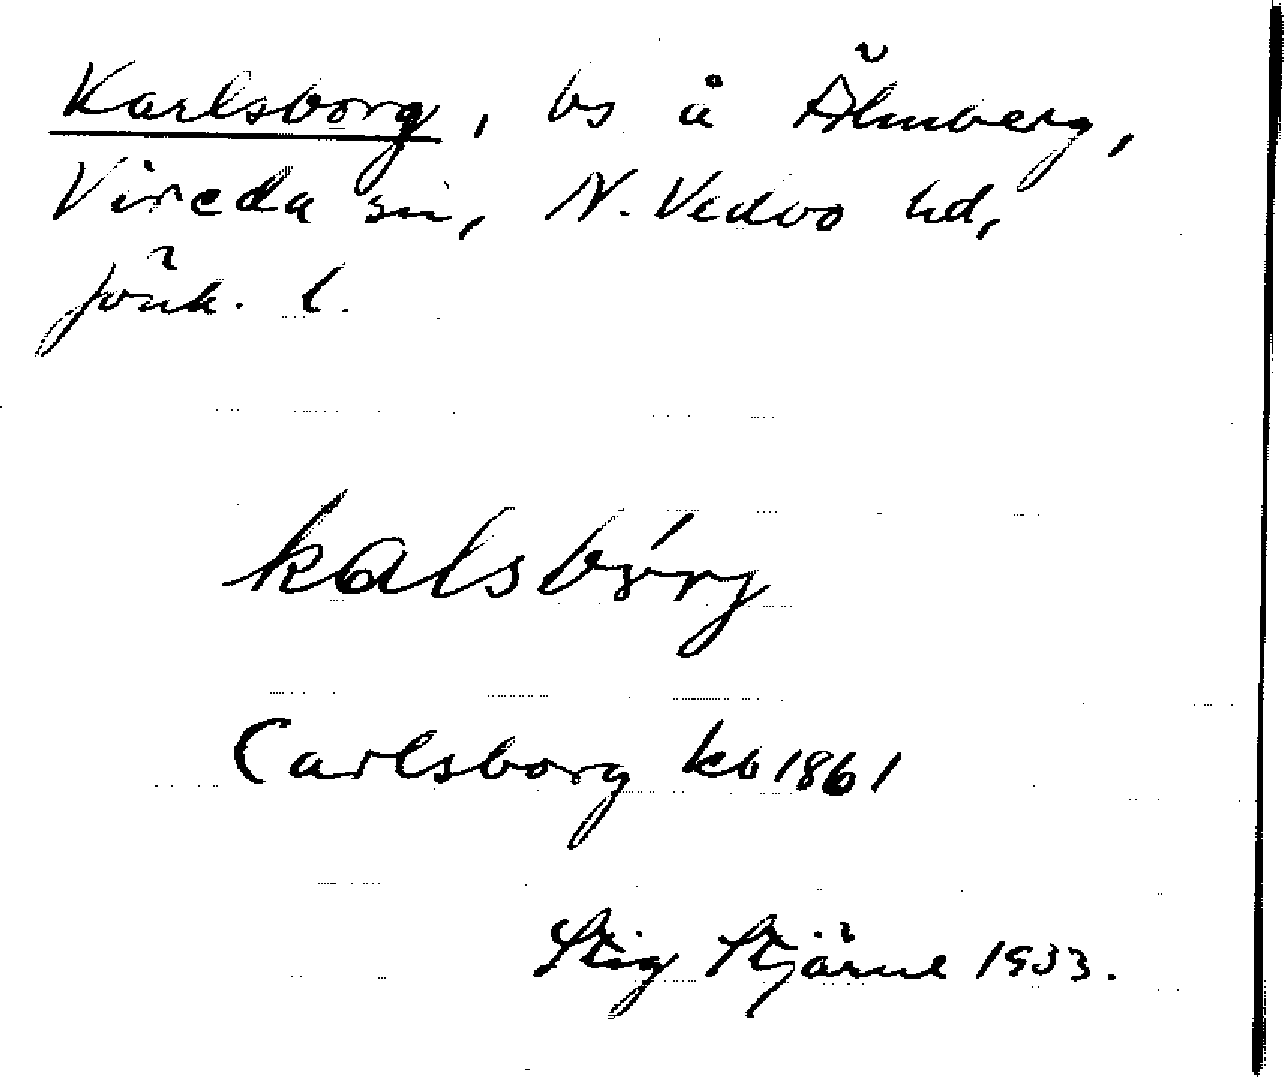 Karlsborg, bs å Älmberg,
Vireda sn, N. Vedbo hd,
Jönk. l.
kalsbórj
Carlsborg kb 1861
Stig Stjärne 1933.